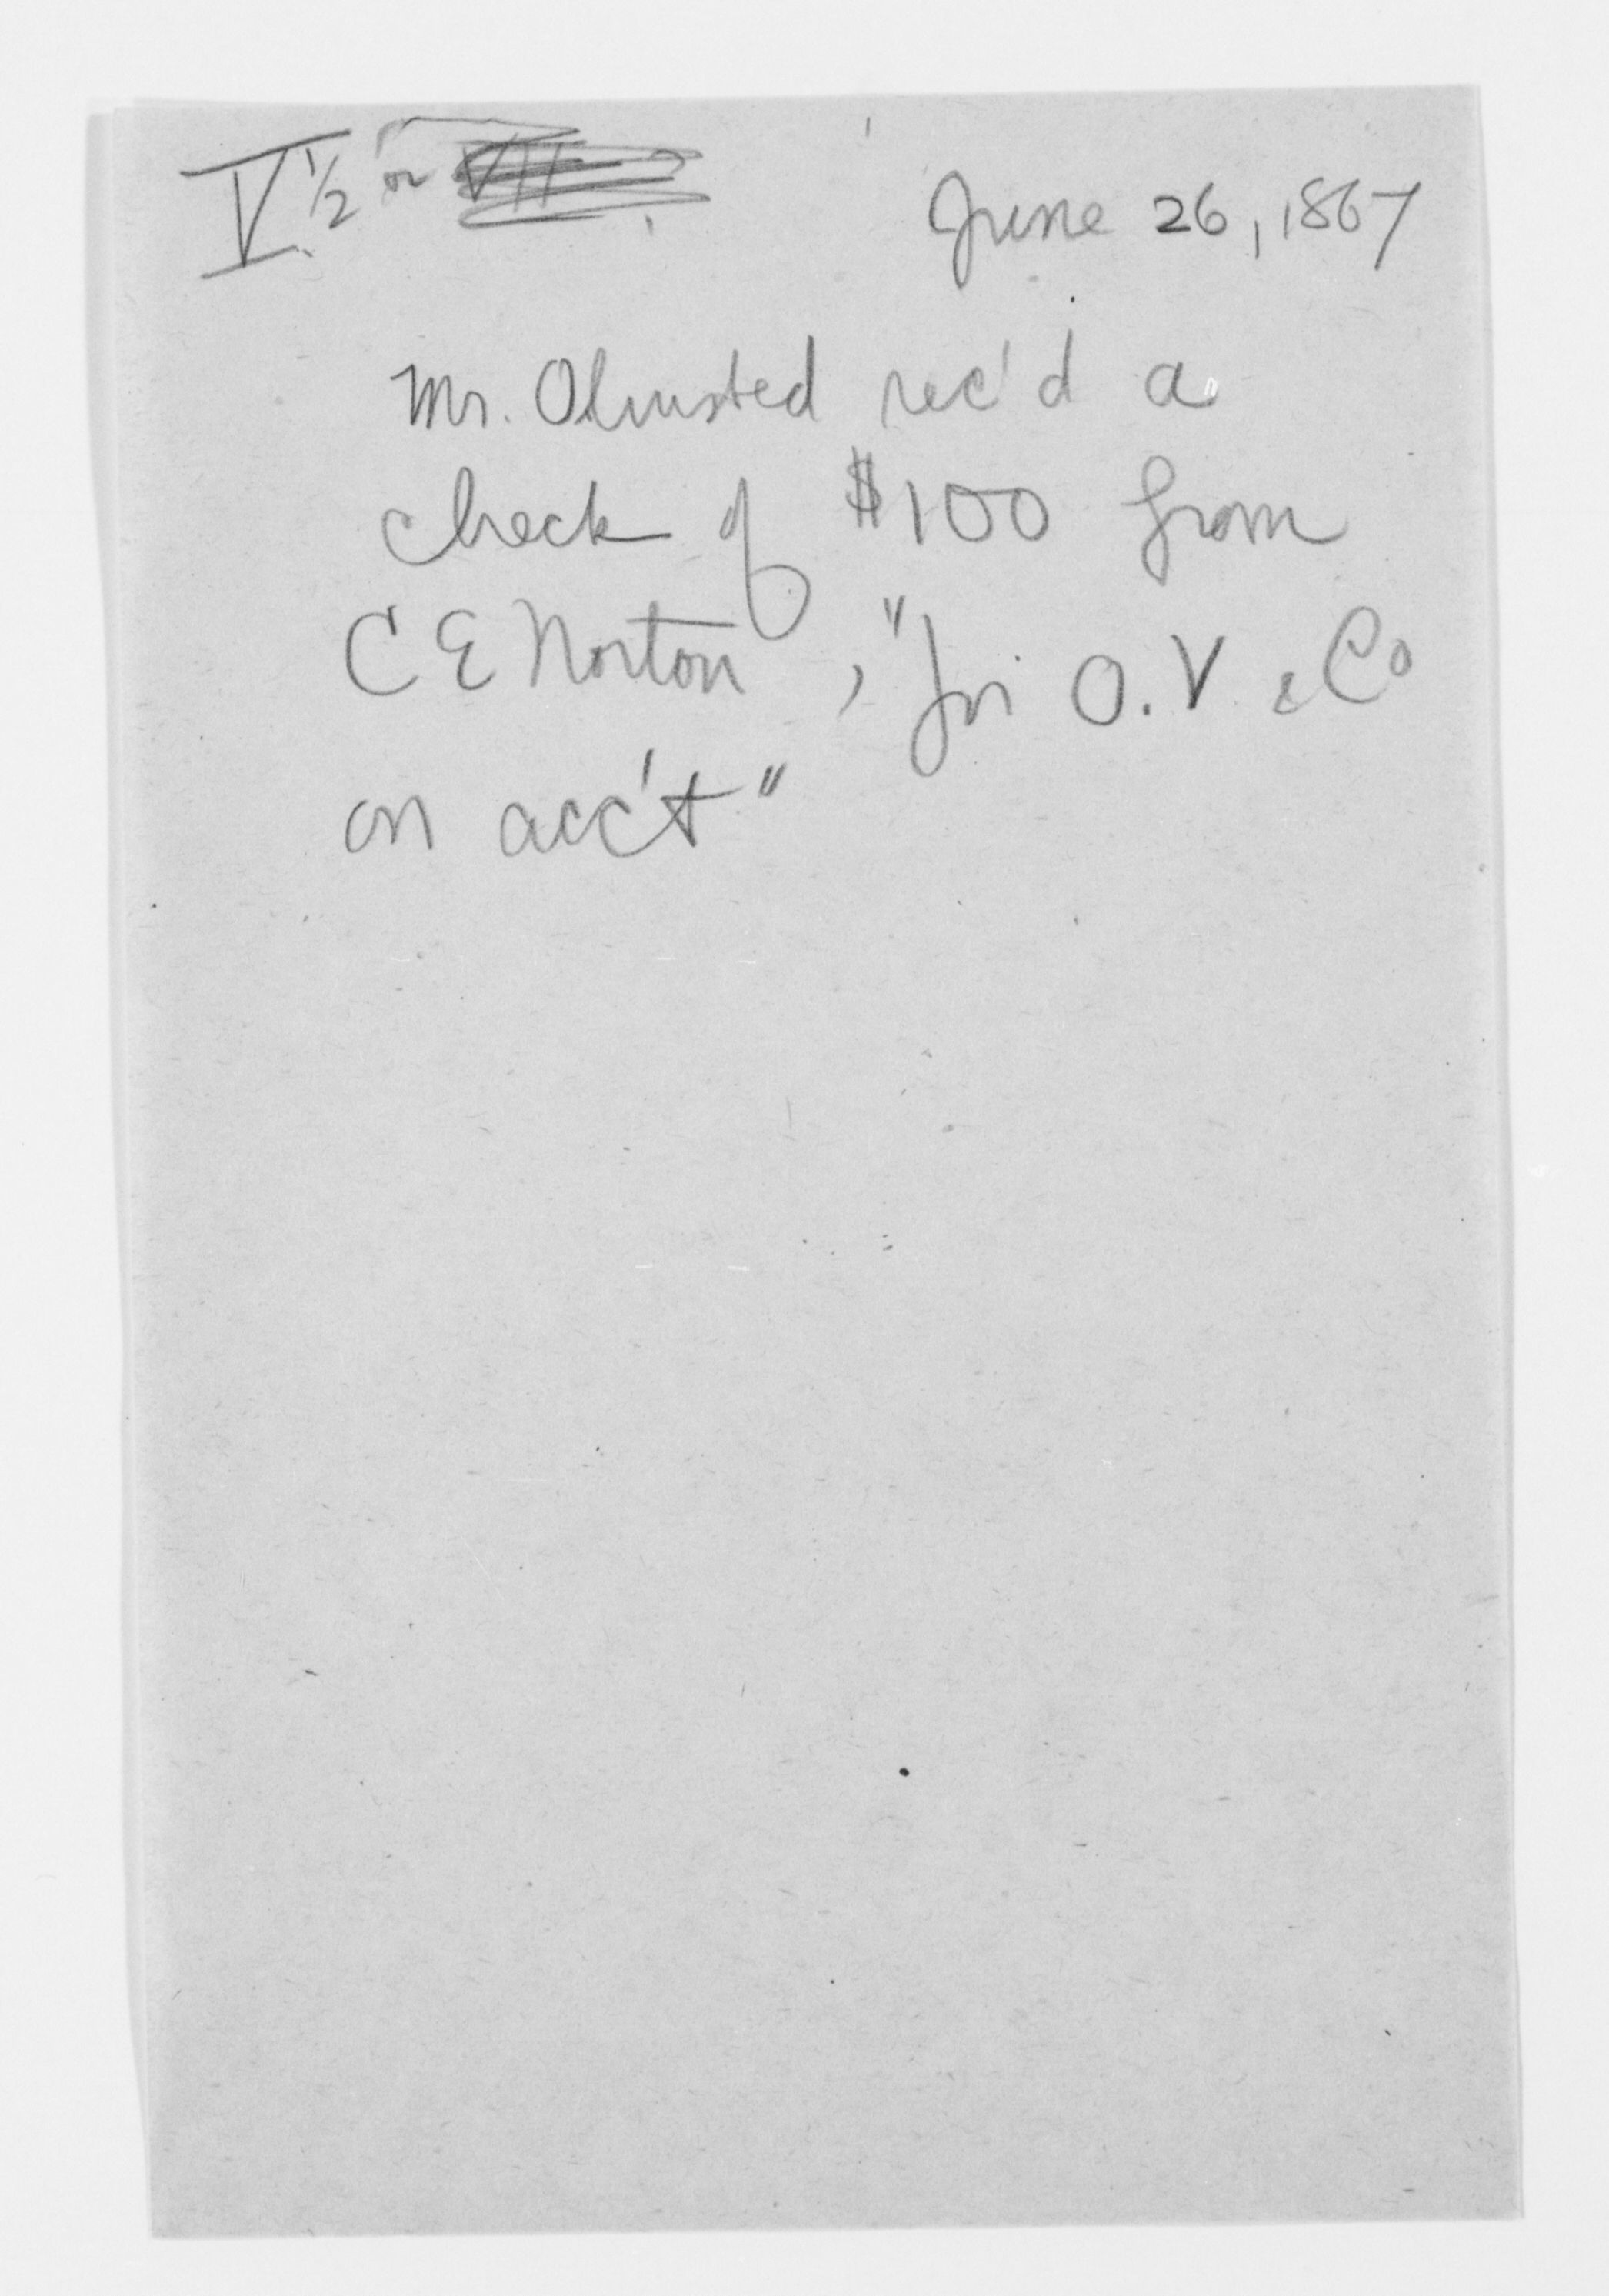 V. 1/2 or VII
June 26, 1867
Mr. Olmsted rec'd a
check of $100 from
C E Norton, "for O.V. & Co
on acc't"